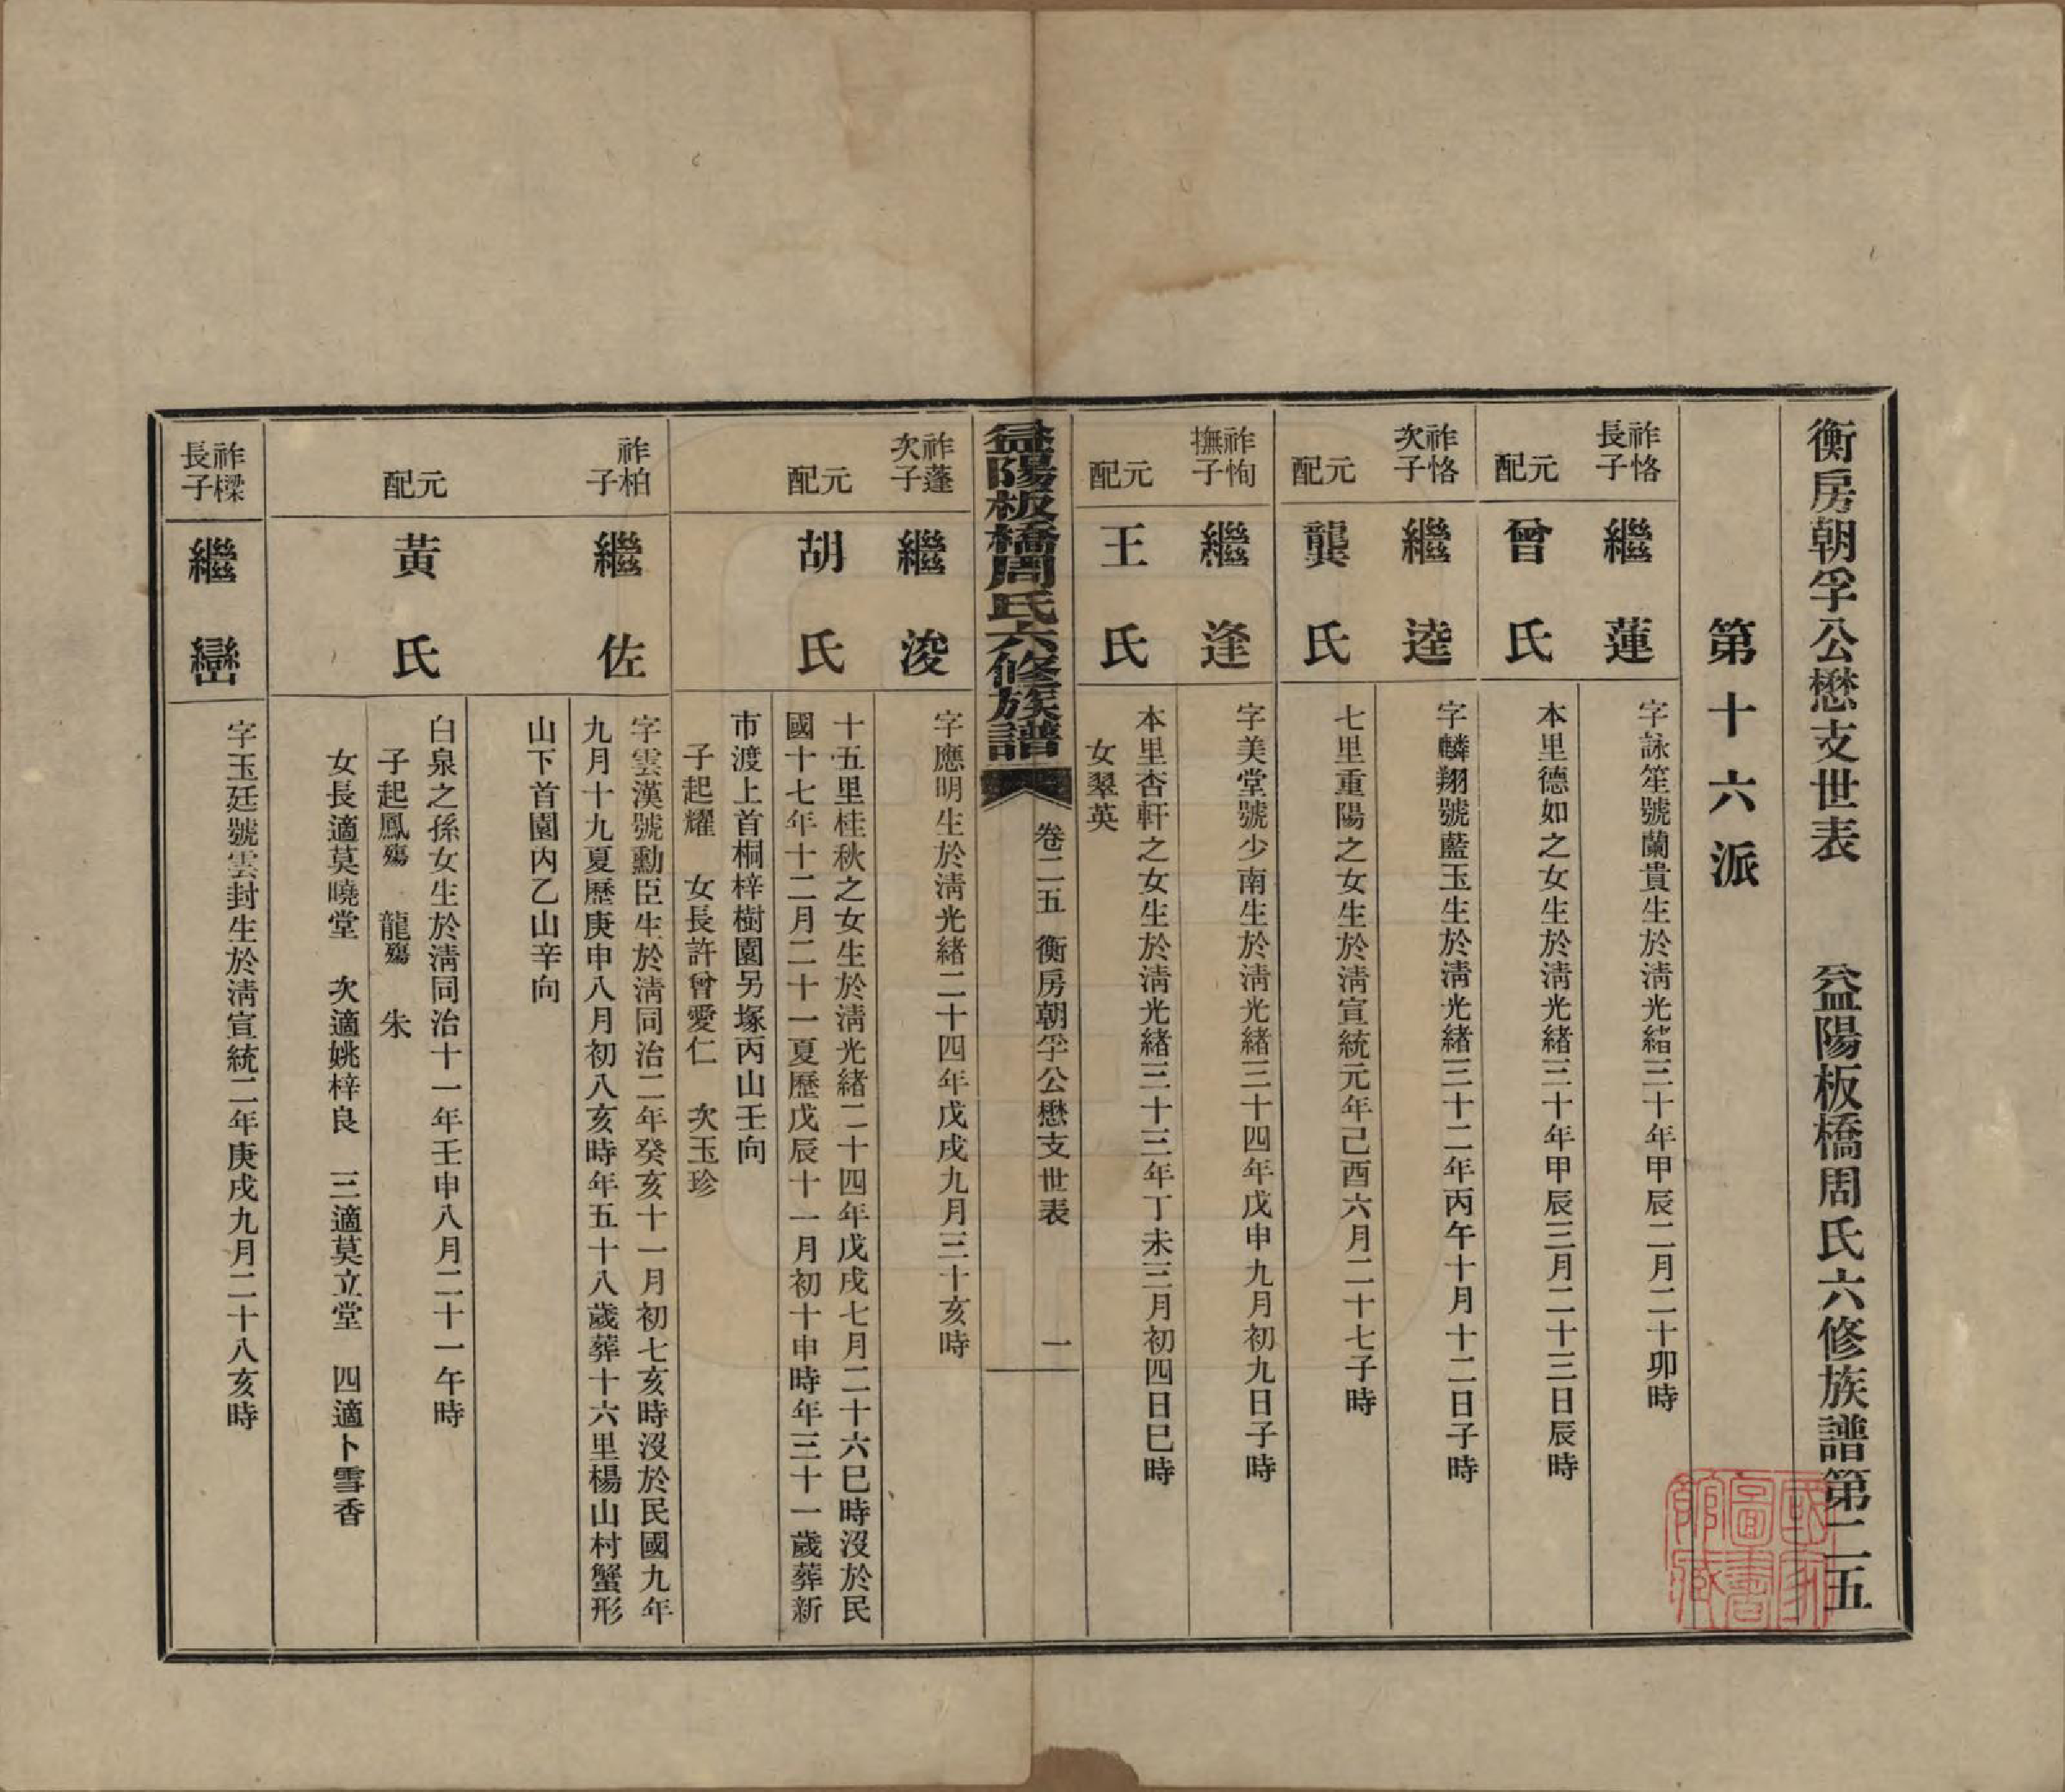 衡房朝孚公懋支世表　益陽板橋周氏六修族譜第二五
第十六派
祚恪長子
繼蓮
字詠笙號蘭貴生於淸光緒三十年甲辰二月二十卯時
元配
曾氏
本里德如之女生於淸光緒三十年甲辰三月二十三日辰時
祚恪次子
繼逵
字麟翔號藍玉生於淸光緒三十二年丙午十月十二日子時
元配
龔氏
七里重陽之女生於淸宣統元年己酉六月二十七子時
祚恂撫子
繼逢
字美堂號少南生於淸光緒三十四年戊申九月初九日子時
元配
王氏
本里杏軒之女生於淸光緒三十三年丁未三月初四日巳時
女翠英
益陽板橋周氏六修族譜
卷二五　衡房朝孚公懋支世表　一
祚蓬次子
繼浚
字應明生於淸光緒二十四年戊戌九月三十亥時
元配
胡氏
十五里桂秋之女生於淸光緒二十四年戊戌七月二十六巳時沒於民
國十七年十二月二十一夏歷戊辰十一月初十申時年三十一歲葬新
市渡上首桐梓樹園另塚丙山壬向
子起耀　女長許曾愛仁　次玉珍
祚柏子
繼佐
字雲漢號勳臣生於淸同治二年癸亥十一月初七亥時沒於民國九年
九月十九夏歷庚申八月初八亥時年五十八歲葬十六里楊山村蟹形
山下首園內乙山辛向
元配
黃氏
白泉之孫女生於淸同治十一年壬申八月二十一午時
子起鳳殤　龍殤　朱
女長適莫曉堂　次適姚梓良　三適莫立堂　四適卜雪香
祚樑長子
繼巒
字玉廷號雲封生於淸宣統二年庚戌九月二十八亥時
國家圖書館藏